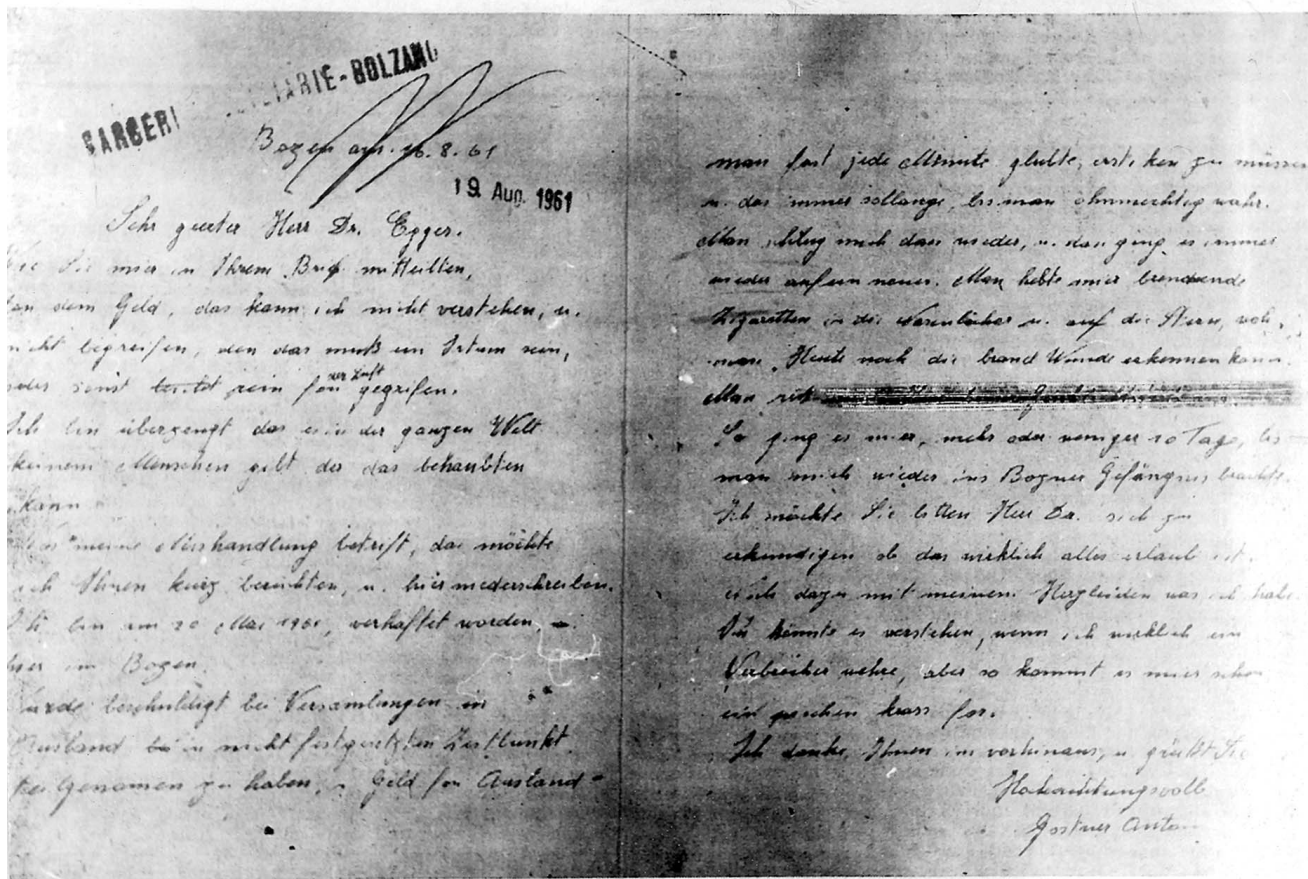 CARCERI GIUDIZIARIE-BOLZANO
Bozen am. 16. 8. 61
19. Aug. 1961
Sehr geerter Herr Dr. Egger.
Wie Sie mier in Ihrem Brif mitteilten,
dem Geld, das kann ich nicht verstehen, u.
nicht begreifen, den das muß ein Irtum sein,
oder sonst rein fon der Luft gegrifen.
Ich bin überzeugt das es in der ganzen Welt
keinem Menschen gibt der das behaubten
kann.
Was meine Mishandlung betrift, das möchte
ich Ihnen kurz berichten, u. hier niederschreiben.
Ich bin am 20 Mai 1961, verhaftet worden,
hier in Bozen.
Wurde beschuldigt bei Versamlungen in
Ausland bei in nicht festgesetzten Zeitbunkt
teilgenomen zu haben, u. Geld fon Ausland-
man fast jede Minute glubte, ersticken zu müssen
u. das immer sollange, bis man ohnmechtig wahr.
Man schlug mich dan wieder, u. dan ging es immer
wieder auf ein neues. Man hebte mier brendende
Zigaretten in die Nasenlöcher u. auf die Stirn,
man Heute noch die brand Wunde erkennen kann.
Man
So ging es mier, mehr oder weniger 10 Tage, bis
man mich wieder ins Bozner Gefängnis brachte.
Ich möchte Sie bitten Herr Dr. sich zu
erkundigen ob das wirklich alles erlaub ist.
auch dazu mit meinem Herzleiden was ich habe.
Ich könnte es verstehen, wenn ich wirklich ein
Verbrecher wehre, aber so kommt es mier schon
ein parchen krass for.
Ich danke Ihnen im vorhinaus, u. grüßt Sie
Hochachtungsvoll
Gostner Anton